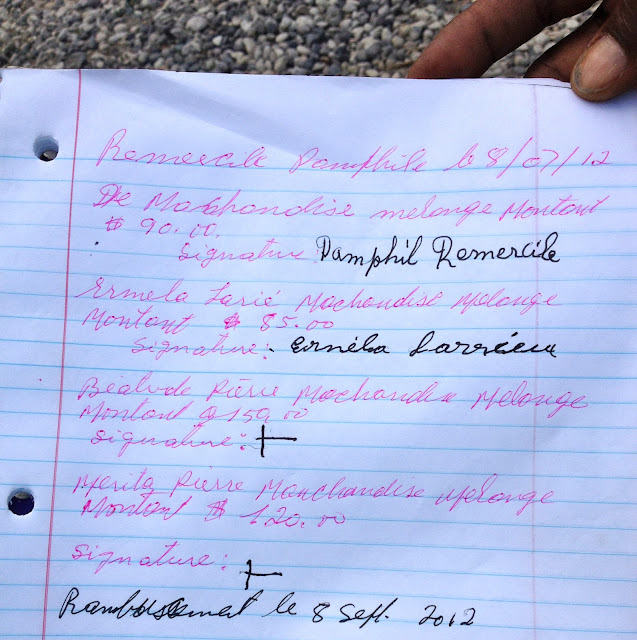 Remercile Pamphile le 8/07/12
De Machandise melange Montant
$ 90.00.
Signature Pamphil Remercile
Ermela Larié Machandise Melange
Montant $ 85.00
Signature: Ernéla
Pierre Machandise Melange
Montant $ 150.00
Signature: +
Merita Pierre Manchandise Melange
Montant $ 120.00
Signature: +
le 8 Sept. 2012